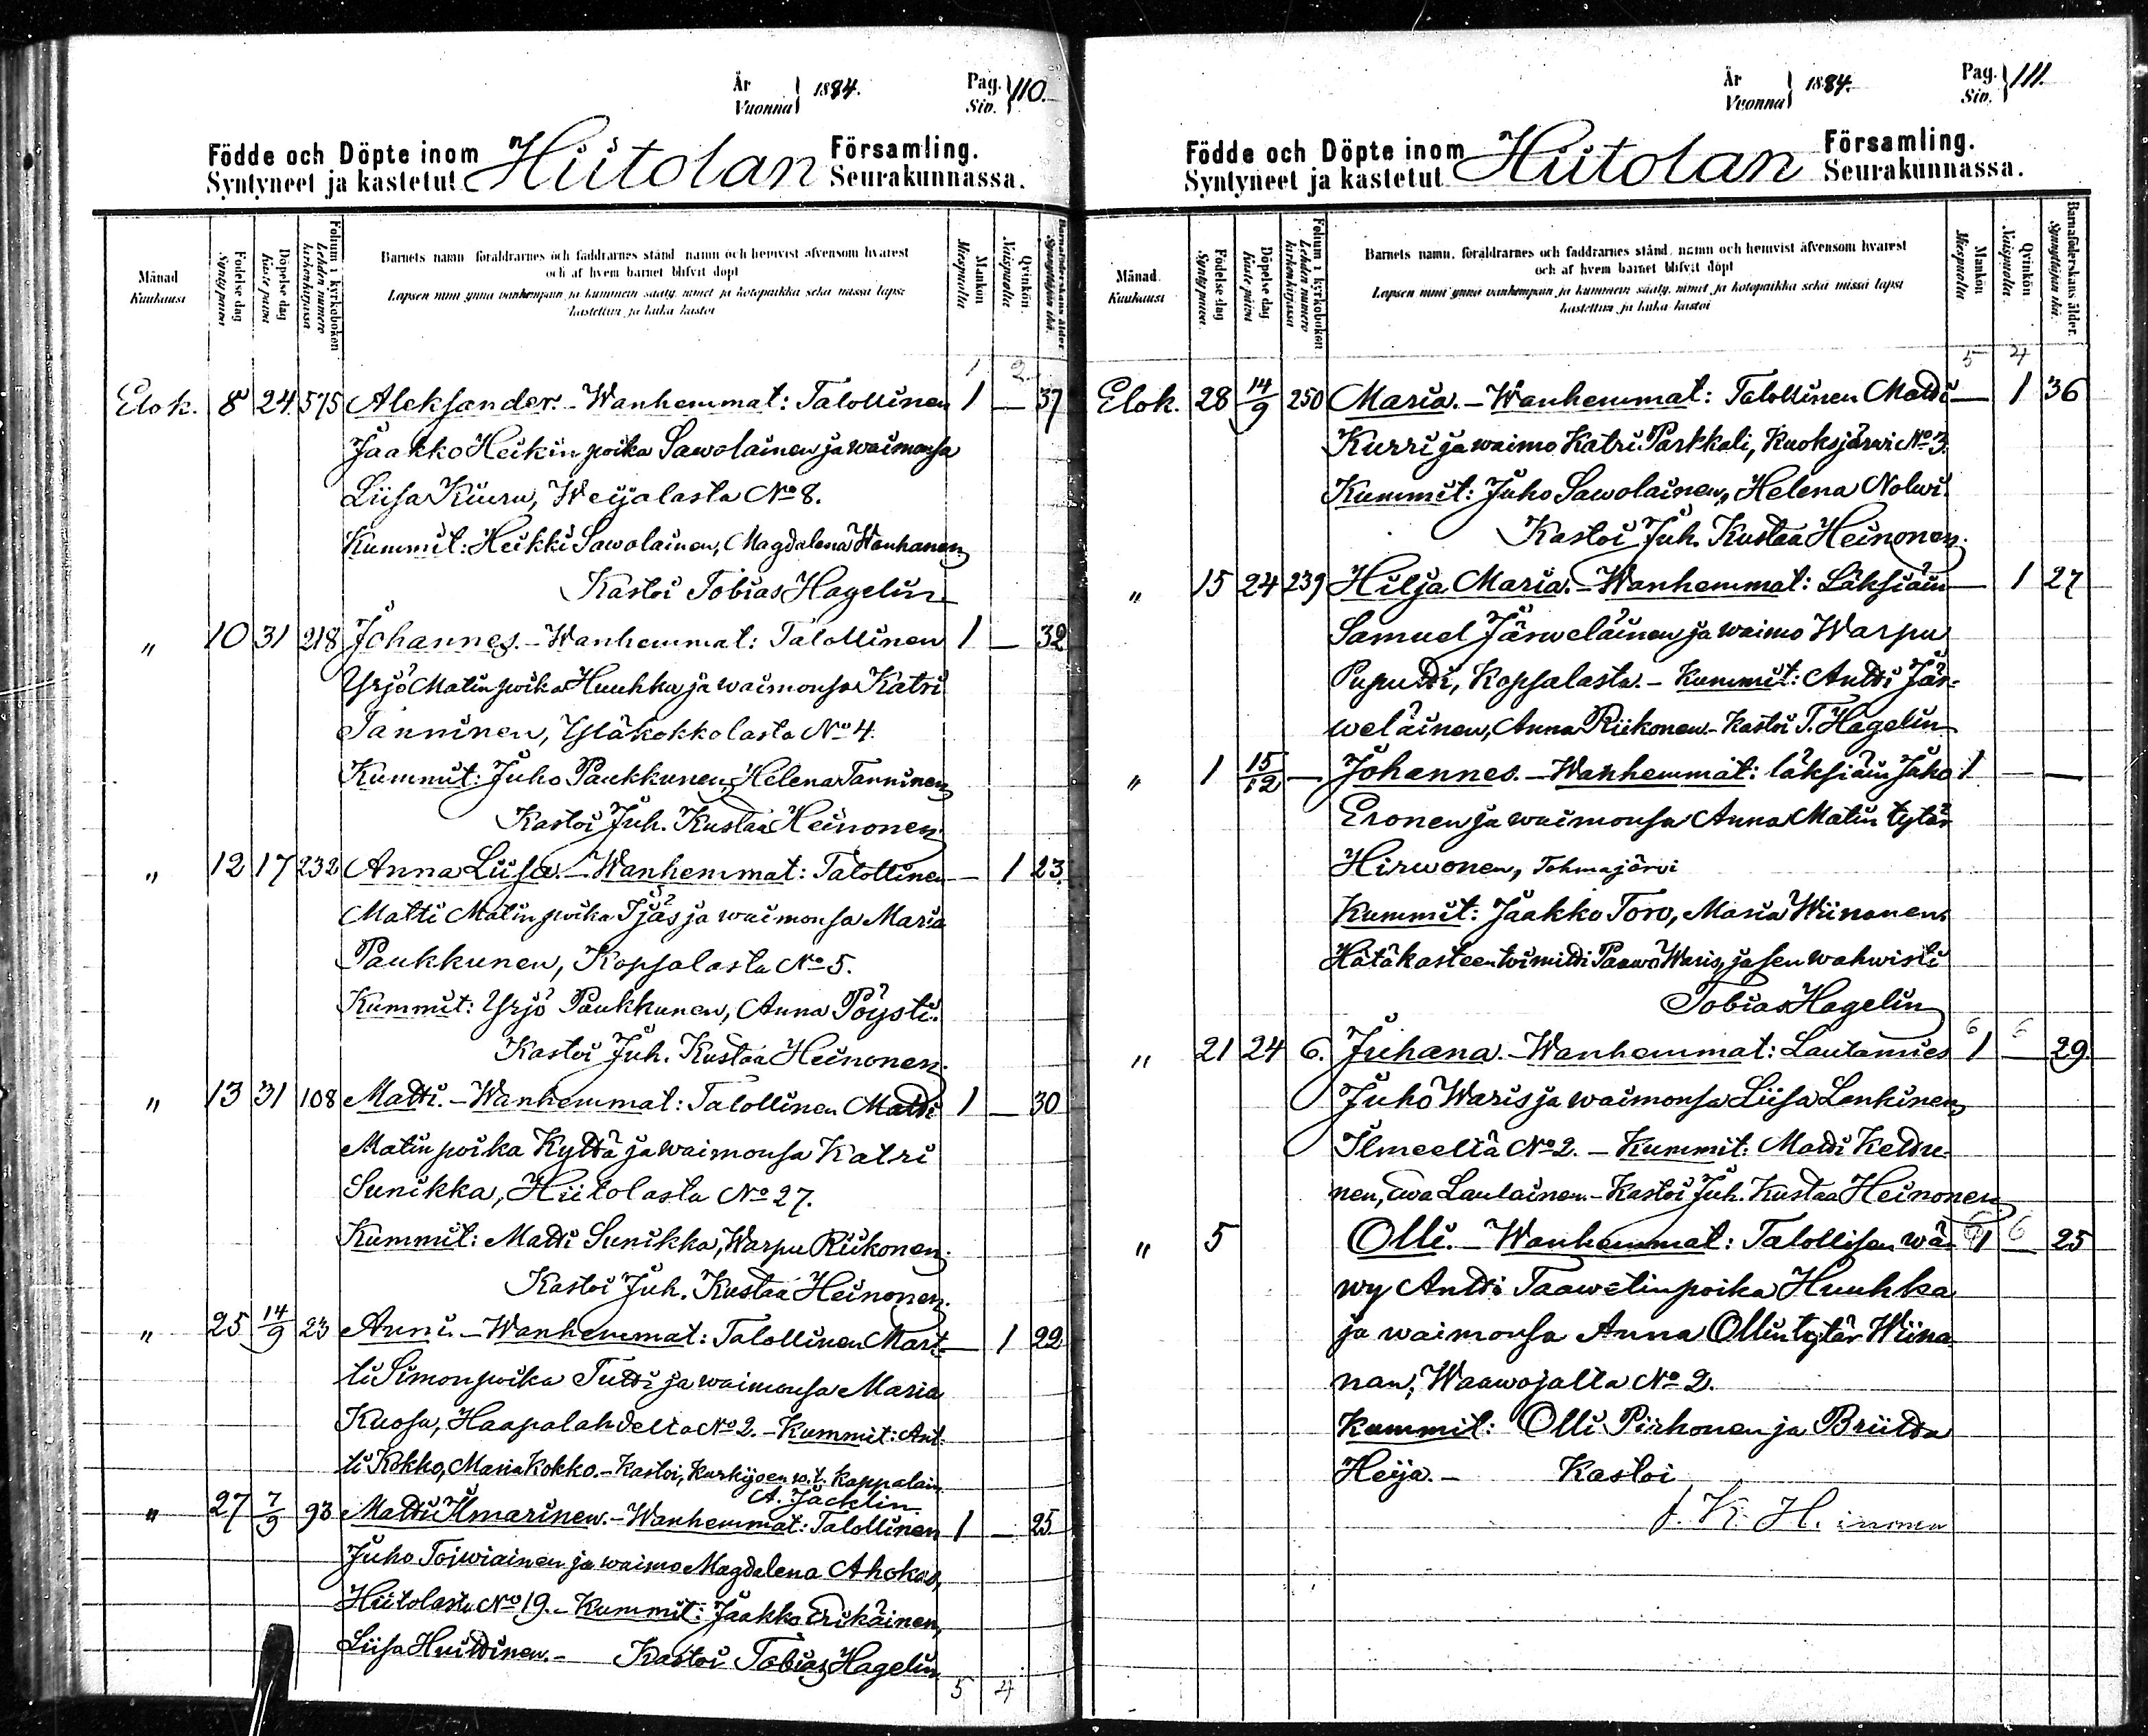 År Vuonna } 1884. Pag. Siv. } 110.
Födde och Döpte inom Hiitolan Församling.
Syntyneet ja kastetut Seurakunnassa.
Månad Kuukausi
Födelse dag Synty päivä
Döpelse dag Kaste päivä
Folium i kyrkoboken Lehden numero kirkonkirjassa
Barnets namn föräldrarnes och faddrarnes stånd namn och hemvist äfvensom hvarest
och af hvem barnet blifvit döpt
Lapsen nimi ynnä vanhempain ja kummien sääty, nimet ja kotopaikka sekä missä lapsi
kastettiin ja kuka kastoi
Mankön Miespuolia
Qvinkön. Naispuolia
Barnaföderskans ålder Synnyttäjän ikä.
1 2
Elok. 8 24 575 Aleksander. - Wanhemmat: Talollinen 1 — 37
Jaakko Heikin poika Sawolainen ja waimonsa
Liisa Kiuru, Weijalasta No 8.
Kummit: Heikki Sawolainen, Magdalena Wanhanen
Kastoi Tobias Hagelin
" 10 31 218 Johannes. - Wanhemmat: Talollinen 1 — 32
Yrjö Matin poika Huuhka ja waimonsa Katri
Tanninen, Yläkokkolasta No 4.
Kummit: Juho Paukkunen, Helena Tanninen
Kastoi Juh. Kustaa Heinonen.
" 12 17 232 Anna Liisa. - Wanhemmat: Talollinen — 1 23.
Matti Matin poika Ijäs ja waimonsa Maria
Paukkunen, Kopsalasta No 5.
Kummit: Yrjö Paukkunen, Anna Pöysti.
Kastoi Juh. Kustaa Heinonen.
" 13 31 108 Matti. - Wanhemmat: Talollinen Matti 1 — 30
Matin poika Kyttä ja waimonsa Katri
Sunikka, Hiitolasta No 27.
Kummit: Matti Sunikka, Warpu Riikonen.
Kastoi Juh. Kustaa Heinonen.
" 25 14/9 23 Anni. - Wanhemmat: Talollinen Mart- — 1 22
ti Simon poika Tutti ja waimonsa Maria
Kuosa, Haapalahdelta No 2. - Kummit: Ant-
ti Kokko, Maria Kokko. - Kastoi, Kurkijoen w.t. kappalain.
A. Jäcklin
" 27 7/9 93 Matti Ilmarinen. - Wanhemmat: Talollinen 1 — 25
Juho Toiwiainen ja waimo Magdalena Ahokas,
Hiitolasta No 19. - Kummit: Jaakko Erikäinen,
Liisa Huittinen. - Kastoi Tobias Hagelin
5 4
År Vuonna } 1884. Pag. Siv. } 111.
Födde och Döpte inom Hiitolan Församling.
Syntyneet ja kastetut Seurakunnassa.
Månad. Kuukausi
Födelse dag Synty päivä
Döpelse dag Kaste päivä
Folium i kyrkoboken Lehden numero kirkonkirjassa
Barnets namn, föräldrarnes och faddrarnes stånd, namn och hemvist äfvensom hvarest
och af hvem barnet blifvit döpt
Lapsen nimi ynnä vanhempain ja kummien sääty, nimet ja kotopaikka sekä missä lapsi
kastettiin ja kuka kastoi
Mankön Miespuolia
Qvinkön Naispuolia
Barnaföderskans ålder. Synnyttäjän ikä.
5 4
Elok. 28 14/9 250 Maria. - Wanhemmat: Talollinen Matti — 1 36
Kurri ja waimo Katri Parkkali, Kuoksjärwi No 3.
Kummit: Juho Sawolainen, Helena Nolwi.
Kastoi Juh. Kustaa Heinonen.
" 15 24 239 Hilja Maria. - Wanhemmat: Läksiäin — 1 27
Samuel Järweläinen ja waimo Warpu
Puputti, Kopsalasta. - Kummit: Antti Jär-
weläinen, Anna Riikonen - Kastoi T. Hagelin
" 1 15/12 — Johannes. - Wanhemmat: läksiäin Juho 1 — —
Eronen ja waimonsa Anna Matin tytär
Hirwonen, Tohmajärvi
Kummit: Jaakko Toro, Maria Wiinanen.
Hätäkasteen toimitti Paawo Waris, ja sen wahwisti
Tobias Hagelin
6 6
" 21 24 6. Juhana. - Wanhemmat: Lautamies 1 — 29.
Juho Waris ja waimonsa Liisa Lankinen,
Ilmeeltä No 2. - Kummit: Matti Keltu-
nen, Ewa Laulainen - Kastoi Juh. Kustaa Heinonen
" 5 Olli. - Wanhemmat: Talollisen wä- 1 6 — 25
wy Antti Taawetinpoika Huuhka
ja waimonsa Anna Ollintytär Wiina-
nan, Waawojalta No 2.
Kummit: Olli Pirhonen ja Briitta
Heija. - Kastoi
J. K. Heinonen